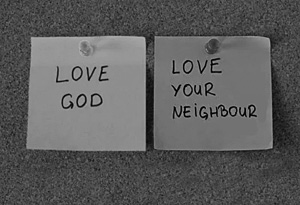 LOVE
GOD
LOVE
YOUR
NEIGHBOUR